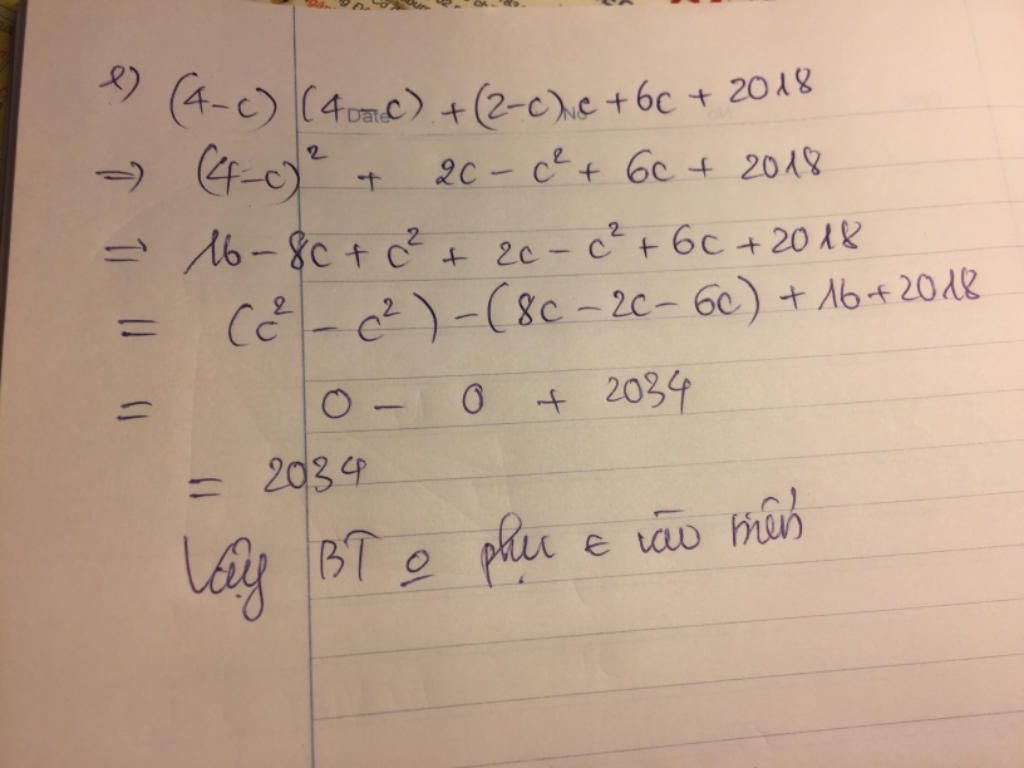 e) (4-c) (4-c) + (2-c)c + 6c + 2018
=> (4-c)² + 2c - c² + 6c + 2018
=> 16 - 8c + c² + 2c - c² + 6c + 2018
= (c² - c²) - (8c - 2c - 6c) + 16 + 2018
= 0 - 0 + 2034
= 2034
Vậy BT o phụ ∈ vào mến